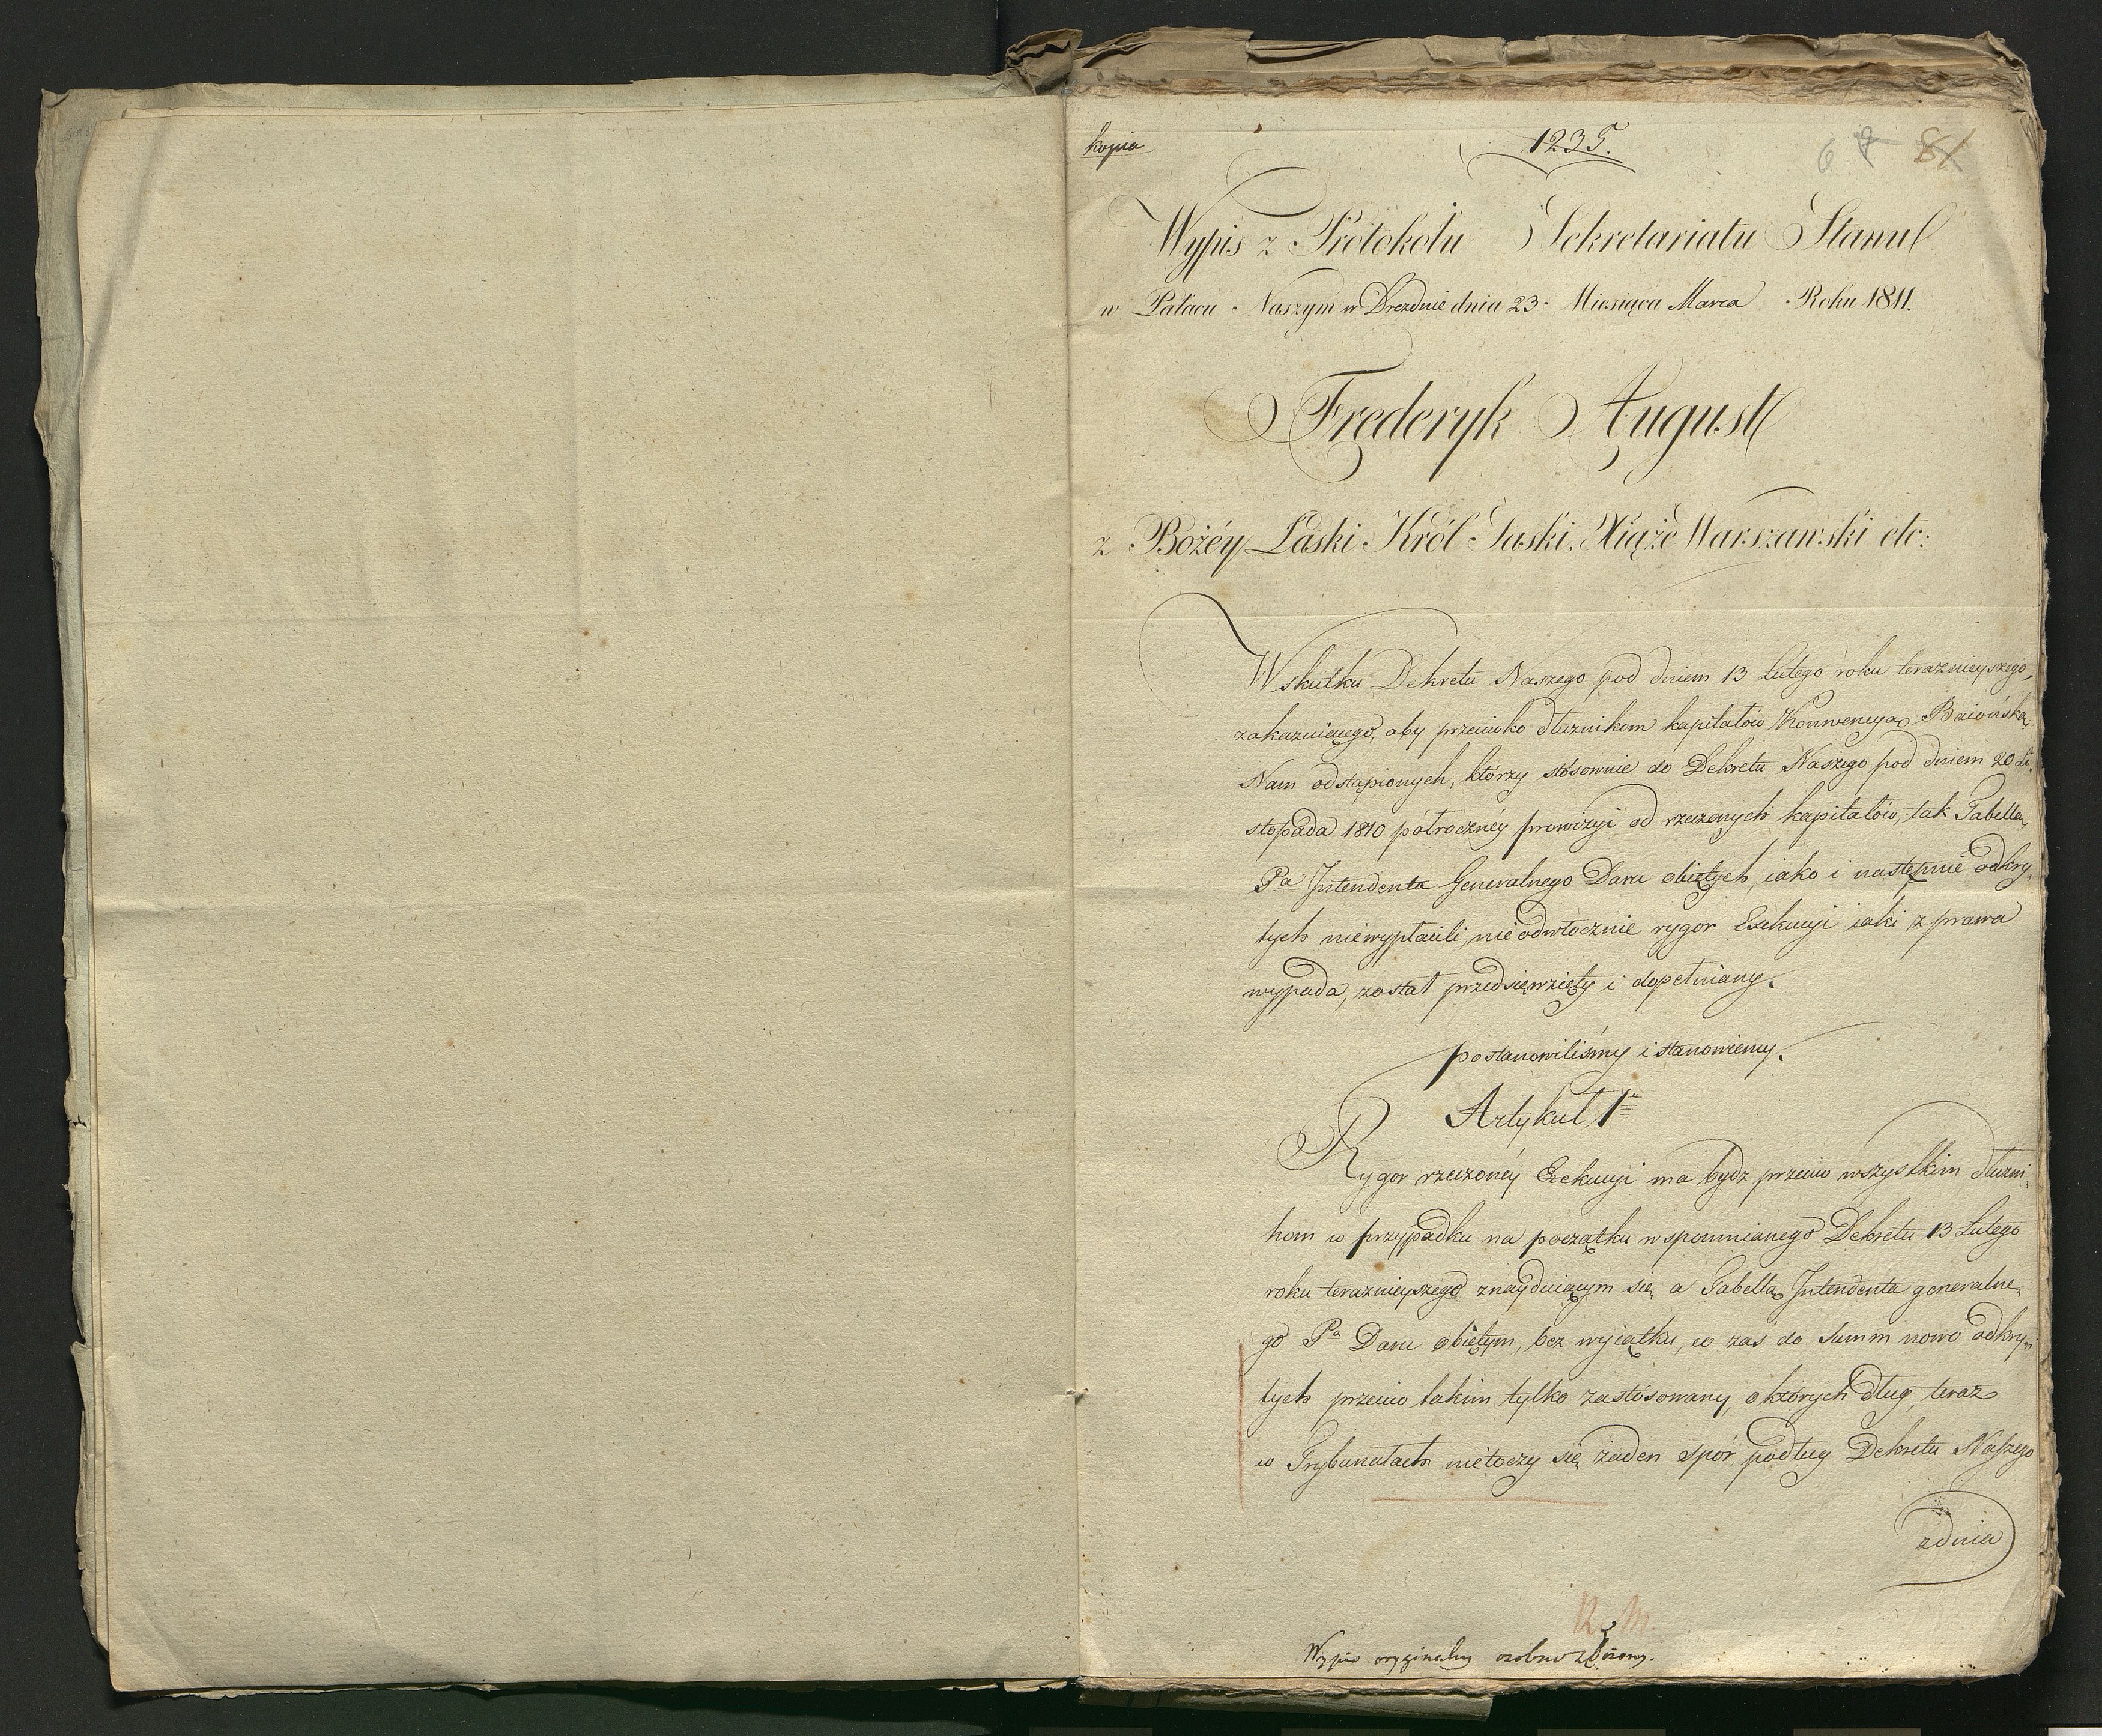 kopia
1235.
6 7 81
Wypis z Protokołu Sekretariatu Stanu
w Pałacu Naszym w Dreźnie dnia 23 Miesiąca Marca Roku 1811.
Frederyk August
z Bożéy Łaski Król Saski, Xiążę Warszawski etc:
W skutku Dekretu Naszego pod dniem 13 Lutego roku teraznieyszego,
zakazuiącego, aby przeciwko dłużnikom kapitałów Konwencyą Baiońską
Nam odstąpionych, którzy stósownie do Dekretu Naszego pod dniem 20 Li-
stopada 1810 półrocznéy prowizyi od rzeczonych kapitałów, tak Tabellą
Pa Intendenta Generalnego Daru obiętych, iako i następnie odkry-
tych niewypłacili, nieodwłocznie rygor Exekucyi iaki z prawa
wypada, został przedsięwzięty i dopełniany.
postanowiliśmy i stanowiemy.
Artykuł 1
Rygor rzeczonéy Exekucyi ma bydz przeciw wszystkim dłużni-
kom w przypadku na początku wspomnianego Dekretu 13 Lutego
roku teraznieyszego znayduiącym się a Tabellą Intendenta generalne-
go Pa Daru obiętym, bez wyiątku, co zaś do Summ nowo odkry-
tych przeciw takim tylko zastósowany, o których dług, teraz
w Trybunałach nietoczy się żaden spór, podług Dekretu Naszego
z dnia
R. M.
Wypis oryginalny osobno złożony.